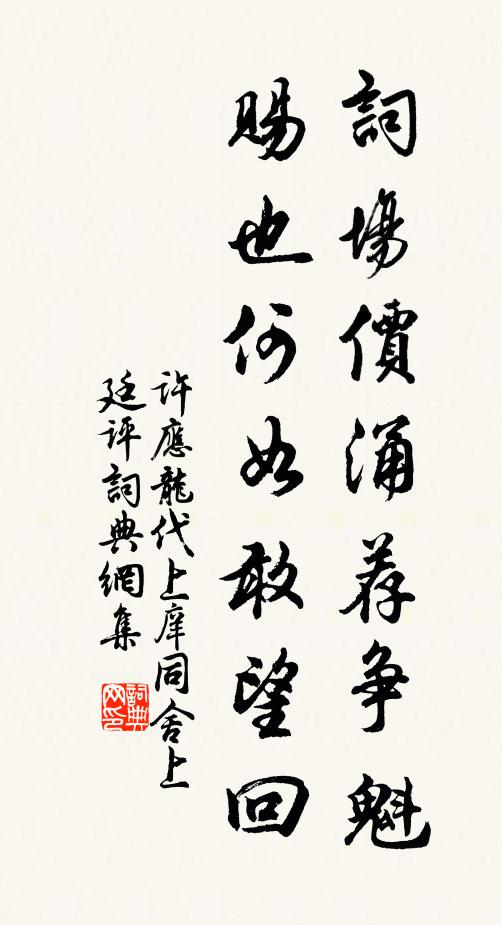 詞場價涌荐争魁
賜也何如敢望回
許應龍代上庠同舍上
廷評詞典網集
詞典网印